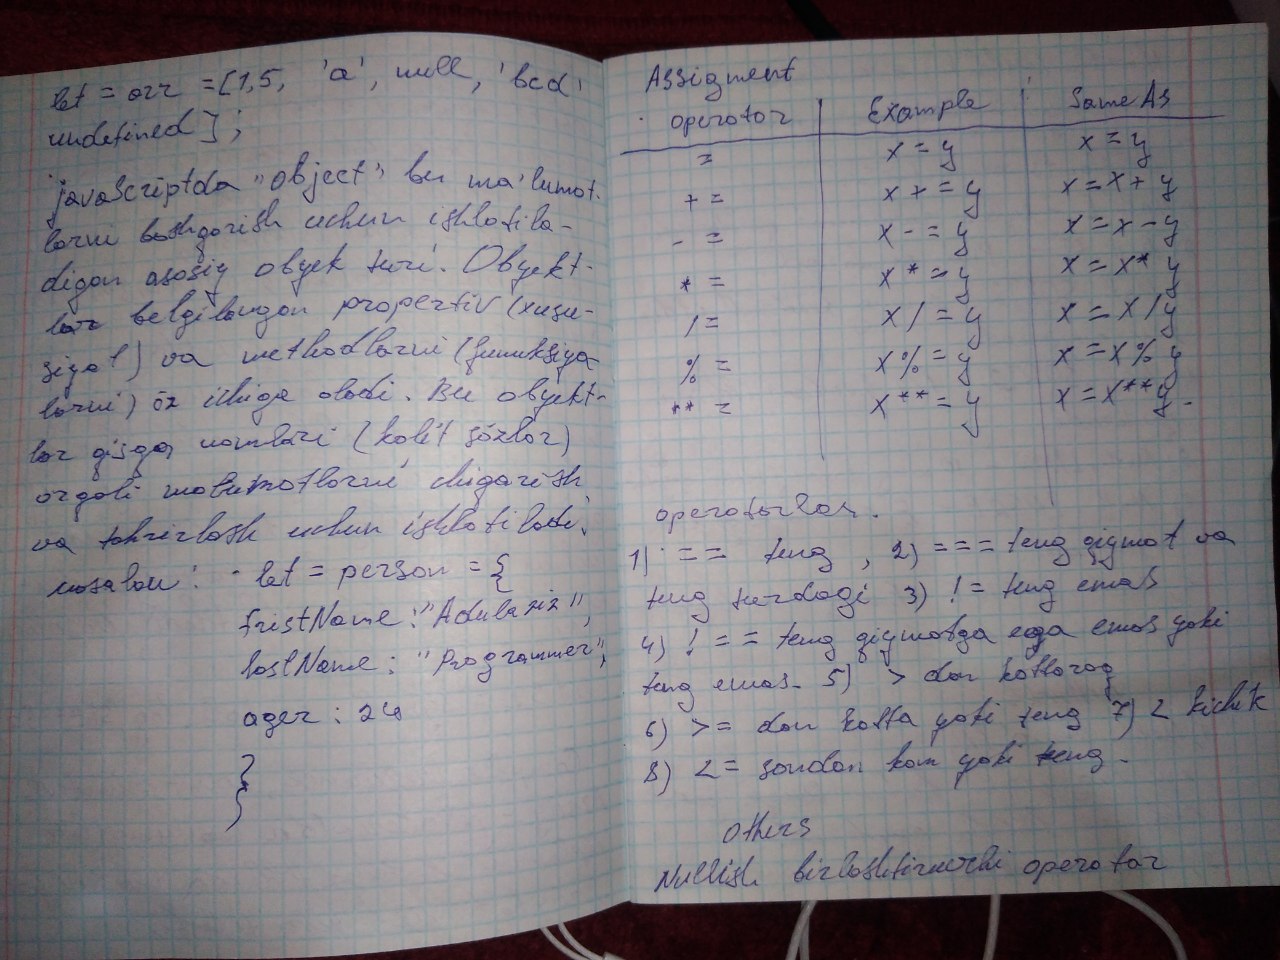 let = arr = [1,5, 'a', null, 'bcd'
undefined ];
javascriptda "object" bu ma'lumot-
larni boshqarish uchun ishlatila-
digan asosiy obyek turi. Obyekt-
lar belgilangan propertiv (xusu-
siyat) va methodlarni (funuksiya
larni) öz ichiga oladi. Bu obyekt-
lar qisqa nomlari (kalit sözlar)
orqali malumotlarni chiqarish
va tahrirlash uchun ishlatiladi.
masalan: let = person = {
fristName: "Adulaziz",
lastName: "Programmer",
ager: 24
}
Assigment
operator Example Same As
= x = y x = y
+ = x + = y x = x + y
- = x - = y x = x - y
* = x * = y x = x * y
/ = x / = y x = x / y
% = x % = y x = x % y
** = x ** = y x = x ** y.
operatorlar.
1) == teng, 2) === teng qiymat va
teng turdagi 3) != teng emas
4) !== teng qiymatga ega emas yoki
teng emas. 5) > dan kattaroq
6) >= dan katta yoki teng 7) < kichik
8) <= sondan kam yoki teng.
others
Nullish birlashtiruvchi operator